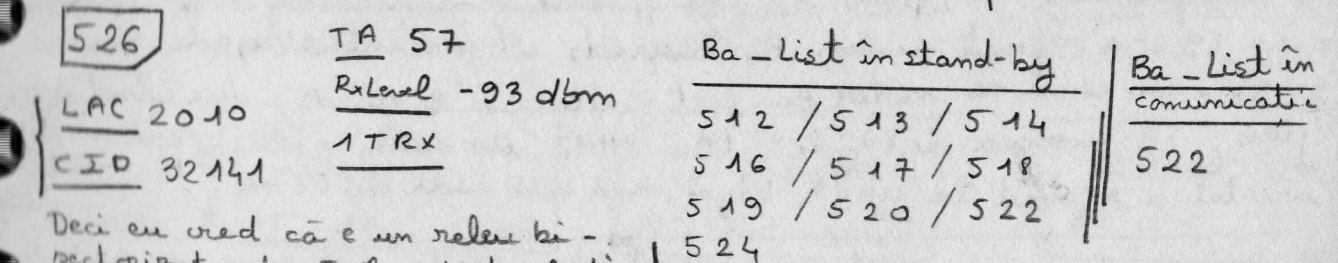 526
LAC 2010
CID 32141
TA 57
RxLevel -93 dbm
1 TRX
Ba_List în stand-by
512 / 513 / 514
516 / 517 / 518
519 / 520 / 522
524
Ba_List în
comunicatie
522
Deci eu cred că e un releu bi-